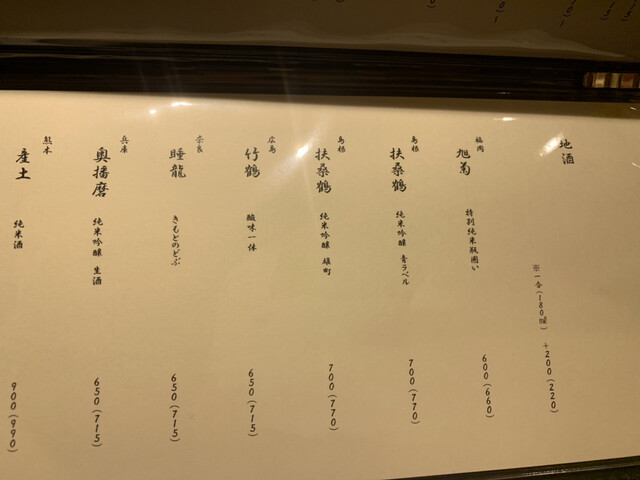 地酒
※一合(180㎖) +200(220)
福岡
旭菊 特別純米瓶囲い 600(660)
島根
扶桑鶴 純米吟醸 青ラベル 700(770)
島根
扶桑鶴 純米吟醸 雄町 700(770)
広島
竹鶴 酸味一体 650(715)
奈良
睡龍 きもとのどぶ 650(715)
兵庫
奥播磨 純米吟醸 生酒 650(715)
熊本
産土 純米酒 900(990)